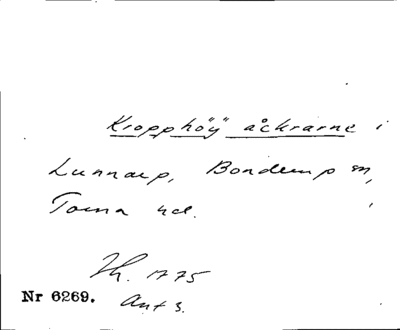 Kropphöÿ" åckrarne i
Lunnarp, Bonderup sn,
Torna hd.
Th. 1775
Nr 6269. Ant 3.